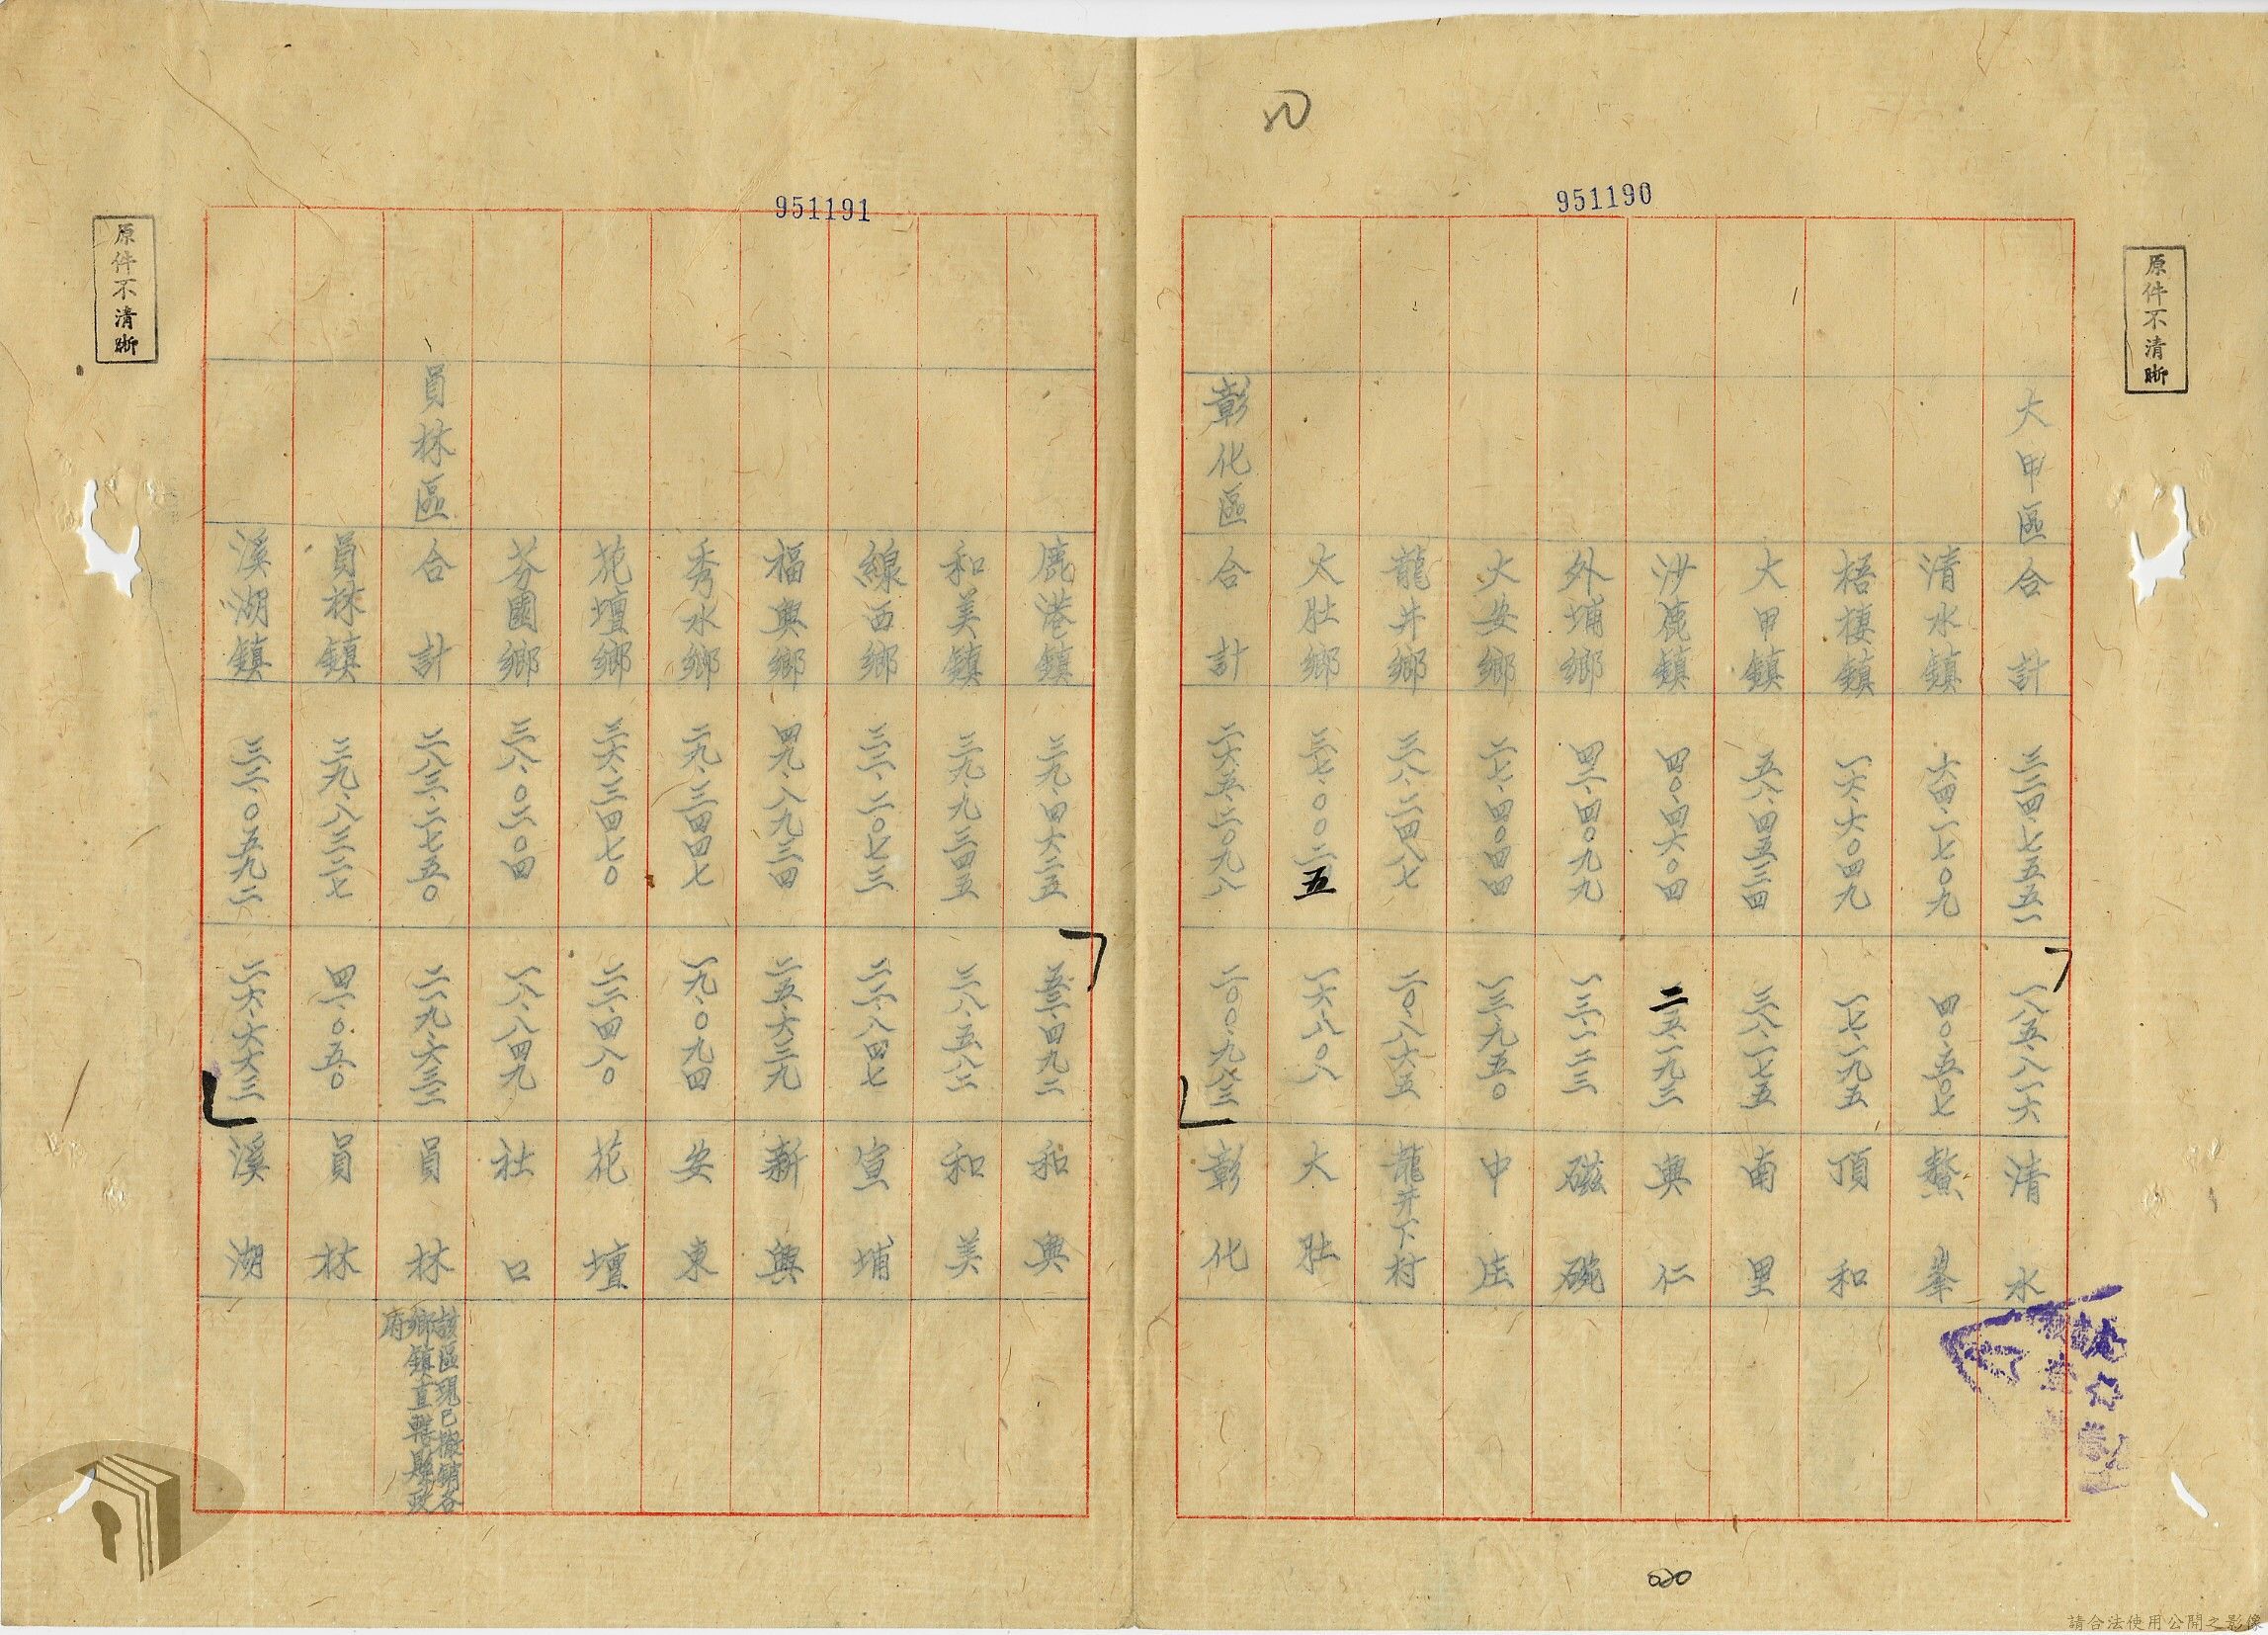 951190
原件不清晰
大甲區 合計 三二四.七五五一 一八五.八一六 清水
清水鎮 六四.一七〇九 四〇.五〇七 鰲峯
梧棲鎮 一六.六〇四九 一七.一九五 頂和
大甲鎮 五八.四五三四 三八.一七五 南里
沙鹿鎮 四〇.四六〇四 二五.一九三 興仁
外埔鄉 四二.四〇九九 一三.一二三 磁磘
大安鄉 二七.四〇四四 一三.九五〇 中庄
龍井鄉 三八.二四八七 二〇.八六五 龍井下村
大肚鄉 三七.〇〇二五 一六.八〇八 大肚
彰化區 合計 二六五.二〇九八 二〇〇.九八三 彰化
020
951191
原件不清晰
鹿港鎮 三九.四六二五 五三.四九二 和興
和美鎮 三九.九三四五 三八.五八二 和美
線西鄉 三二.二〇七三 二二.八四七 宣埔
福興鄉 四九.八九三四 二五.六三九 新興
秀水鄉 二九.三四四七 一九.〇九四 安東
花壇鄉 三六.三四七〇 二二.四八〇 花壇
芬園鄉 三八.〇二〇四 一八.八四九 社口
員林區 合計 二八三.二七五〇 二一九.六三三 員林 該區現已撤銷各鄉鎮直轄縣政府
員林鎮 三九.八三二七 四一.〇五〇 員林
溪湖鎮 三二.〇五九二 二六.六六三 溪湖
請合法使用公開之影像